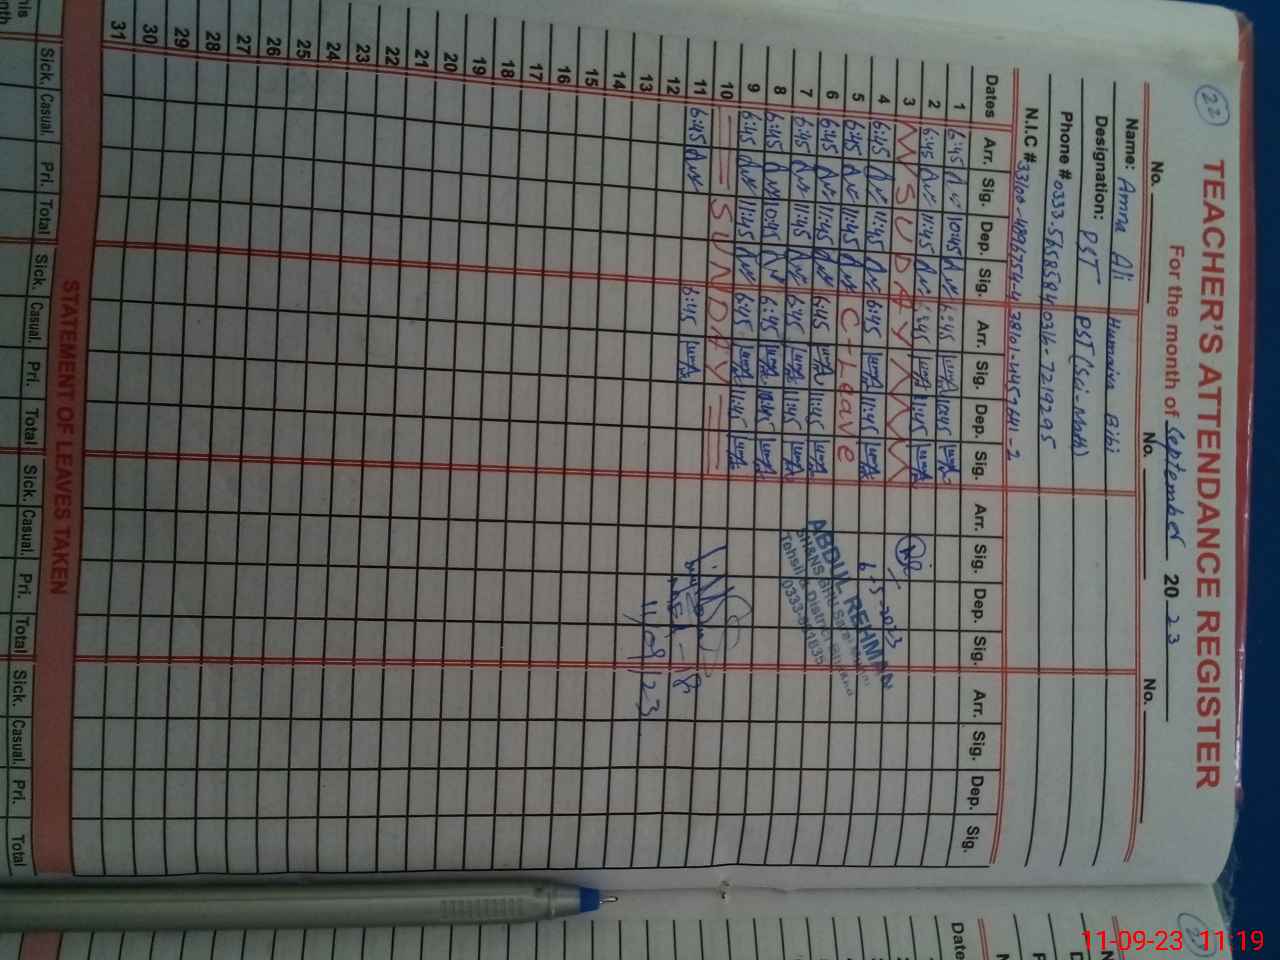 22
TEACHER'S ATTENDANCE REGISTER
For the month of September 20 23
No. No. No.
Name: Amna Ali Humaira Bibi
Designation: PST PST (Sci-Math)
Phone # 0333.5658584 0316-7219295
N.I.C #
Dates Arr. Sig. Dep. Sig. Arr. Sig. Dep. Sig. Arr. Sig. Dep. Sig. Arr. Sig. Dep. Sig.
1 6:45 10:45 6:45 10:45
2 6:45 11:45 6:45 11:45
3 SUNDAY
4 6:45 11:45 6:45 11:45
5 6:45 11:45 C-Leave
6 6:45 11:45 6:45 11:45
7 6:45 11:45 6:45 11:45
8 6:45 10:45 6:45 10:45
9 6:45 11:45 6:45 11:45
10 SUNDAY
11 6:45 6:45
12
13
14
15
16
17
18
19
20
21
22
23
24
25
26
27
28
29
30
31
ABDUL REHMAN
Tehsil & District
11/09/23
STATEMENT OF LEAVES TAKEN
Sick. Casual. Pri. Total Sick. Casual. Pri. Total Sick. Casual. Pri. Total Sick. Casual. Pri. Total
Date
11-09-23 11:19